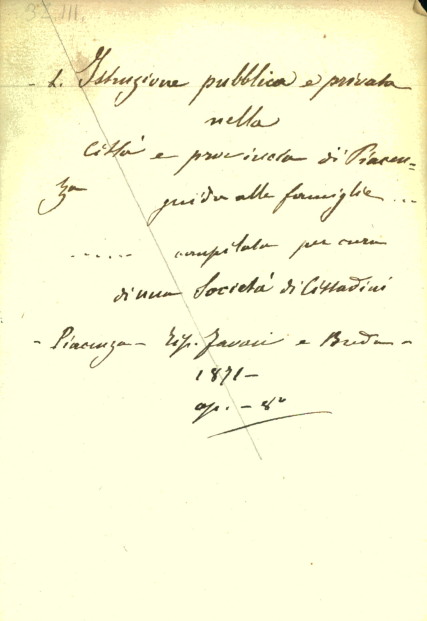 32.III.
- 1. Istruzione pubblica e privata
nella
Città e provincia di Piacen=
za guida alle famiglie ...
...... compilata per cura
di una Società di Cittadini
- Piacenza - Tip. Tavani e Breda -
1871 -
op. - 8°